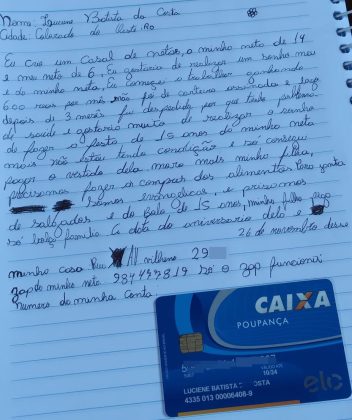 Nome Luciene Batista da Costa
Cidade: Colorado do Oeste, Ro
Eu crio um Casal de netos, a minha neta de 14
e meu neto de 6. Eu gostaria de realizar um sonho meu
e da minha neta, Eu começei a trabalhar ganhando
600 reais por mês não foi de carteira assinada e logo
depois de 3 meses fui despedida por que tenho problemas
de saúde e gostaria muito de realizar o sonho
de fazer a festa de 15 anos da minha neta
mais não estou tendo condição e só consegui
pagar o vestido dela mora mais minha filha,
precisamos fazer as compras dos alimentos para janta
Somos evangélicas, e precisamos
de salgados e do Bolo de 15 anos, minha filha pega
só bolsa família a data do aniversario dela é
26 de novembro desse
minha casa Rua Vilhena 29
zap de minha neta 987497819 só o zap funciona
numero da minha Conta
CAIXA
POUPANÇA
VALIDADE
10/24
elo
LUCIENE BATISTA OSTA
4335 013 00006408-9